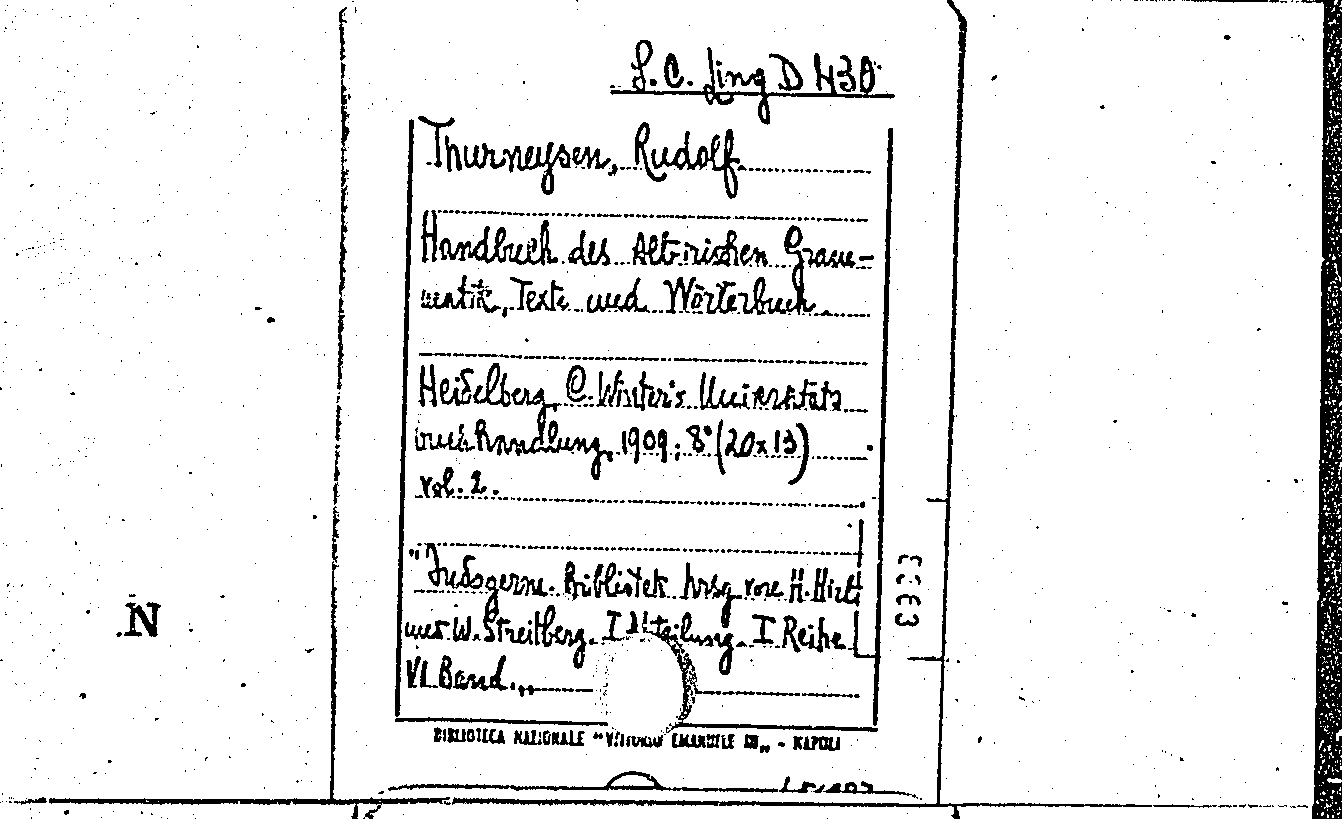 S.C. Ling D 430
Thurneysen, Rudolf.
Handbuch des Altirischen Gram-
matik, Texte und Wörterbuch.
Heidelberg, C. Winter's Universitäts
buchhandlung, 1909; 8° (20x13)
vol. 2.
"Indogerm. Bibliotek hrsg von H. Hirt
und W. Streitberg. I Abteilung. I Reihe
VI Band.„
BIBLIOTECA NAZIONALE "VITTORIO EMANUELE III„ - NAPOLI
N